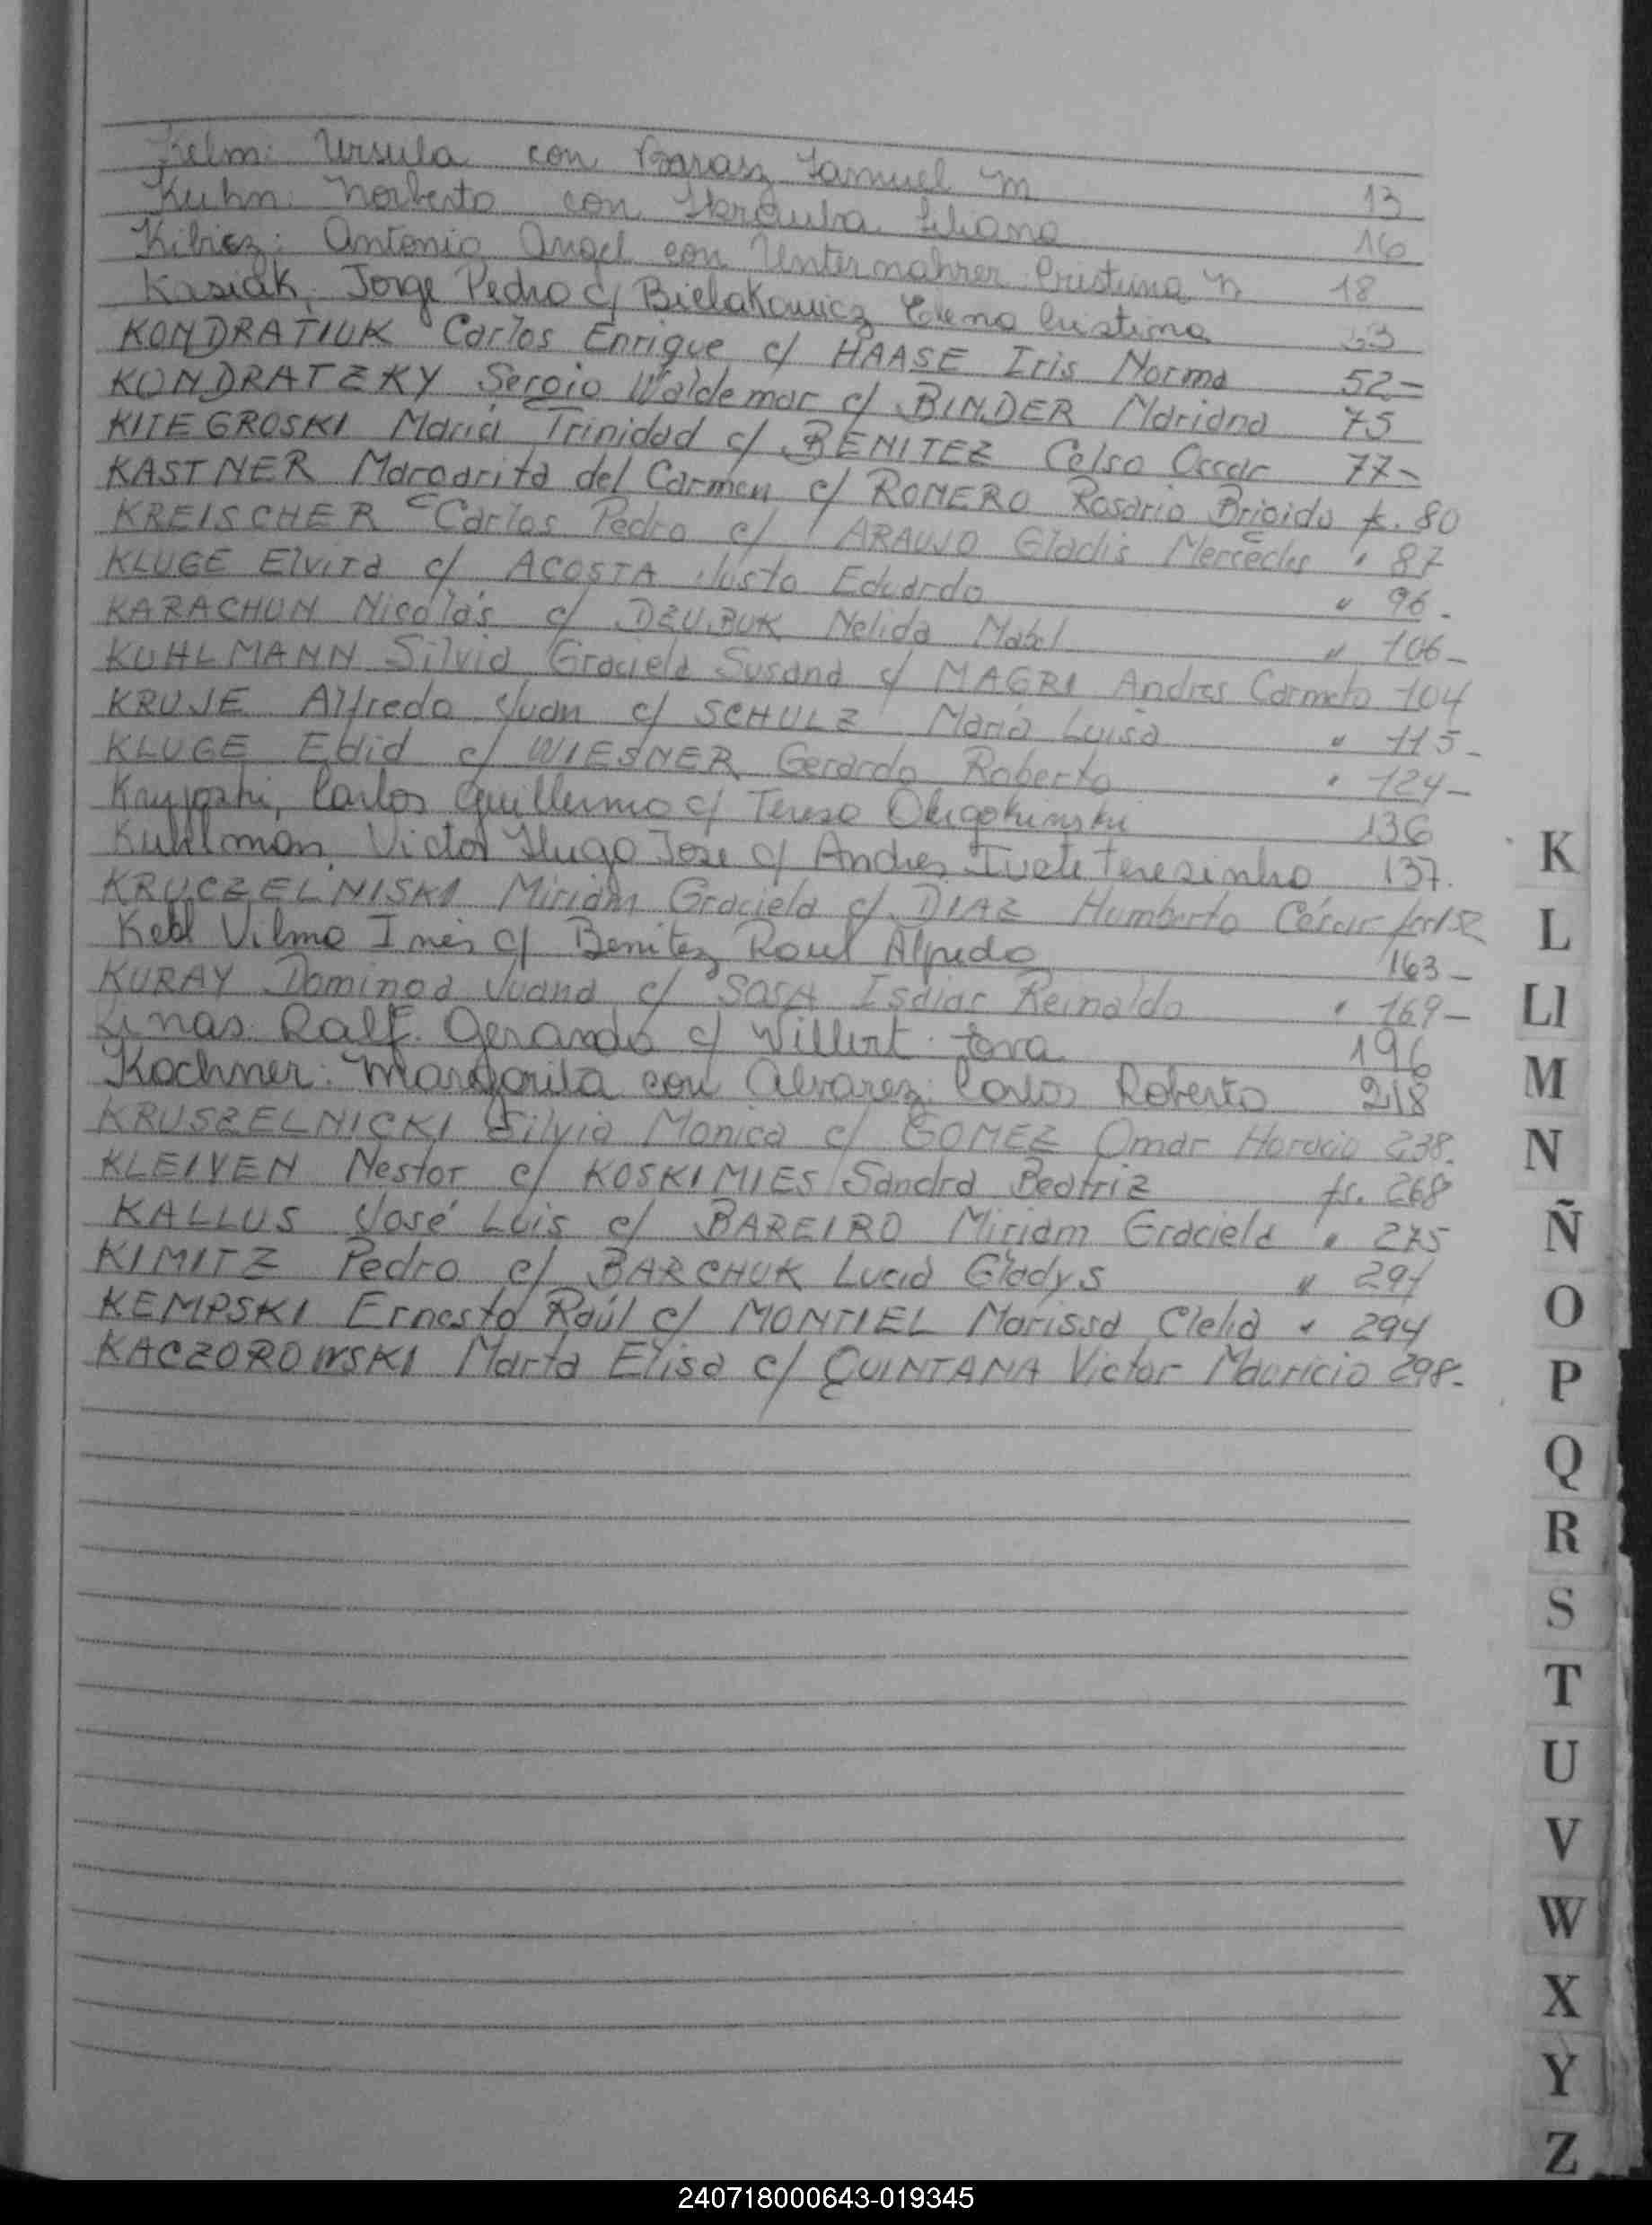 Kelm: Ursula con Garasz Samuel M 13
Kuhn: Norberto con Skrauba Liliana 16
Kibisz: Antonio Angel con Unternahrer Cristina N 18
Kasiak, Jorge Pedro c/ Bielakowicz Elena Cristina 33
KONDRATIUK Carlos Enrique c/ HAASE Iris Norma 52=
KONDRATZKY Sergio Waldemar c/ BINDER Mariana 75
KITEGROSKI Maria Trinidad c/ BENITEZ Celso Oscar 77-
KASTNER Margarita del Carmen c/ ROMERO Rosario Brigido f. 80
KREISCHER Carlos Pedro c/ ARAUJO Gladis Mercedes " 87
KLUGE Elvira c/ ACOSTA Justo Eduardo " 96-
KARACHUN Nicolás c/ DZIUBUK Nelida Mabel " 106-
KUHLMANN Silvia Graciela Susana c/ MAGRI Andres Carmelo 104
KRUJE Alfredo Juan c/ SCHULZ María Luisa " 115-
KLUGE Edid c/ WIESNER Gerardo Roberto " 124-
Carlos Guillermo c/ Teresa 136
Kuhlman, Victor Hugo Jose c/ Andres Ivete Teresinha 137.
KRUCZELNISKI Miriam Graciela c/ DIAZ Humberto César
Kebl Vilma Ines c/ Benitez Raul Alfredo 163-
KURAY Dominga Juana c/ SOSA Isaias Reinaldo " 169-
Kinas Ralf Gerardo c/ Willert 196
Kochner: Margarita con Alvarez: Carlos Roberto 218
KRUSZELNICKI Silvia Monica c/ GOMEZ Omar Horacio 238.
KLEIVEN Nestor c/ KOSKIMIES Sandra Beatriz fs. 268
KALLUS José Luis c/ BAREIRO Miriam Graciela " 275
KIMITZ Pedro c/ BARCHUK Lucia Gladys " 291
KEMPSKI Ernesto Raúl c/ MONTIEL Marissa Clelia " 294
KACZOROWSKI Marta Elisa c/ QUINTANA Victor Mauricio 298-
K
L
Ll
M
N
Ñ
O
P
Q
R
S
T
U
V
W
X
Y
Z
240718000643-019345